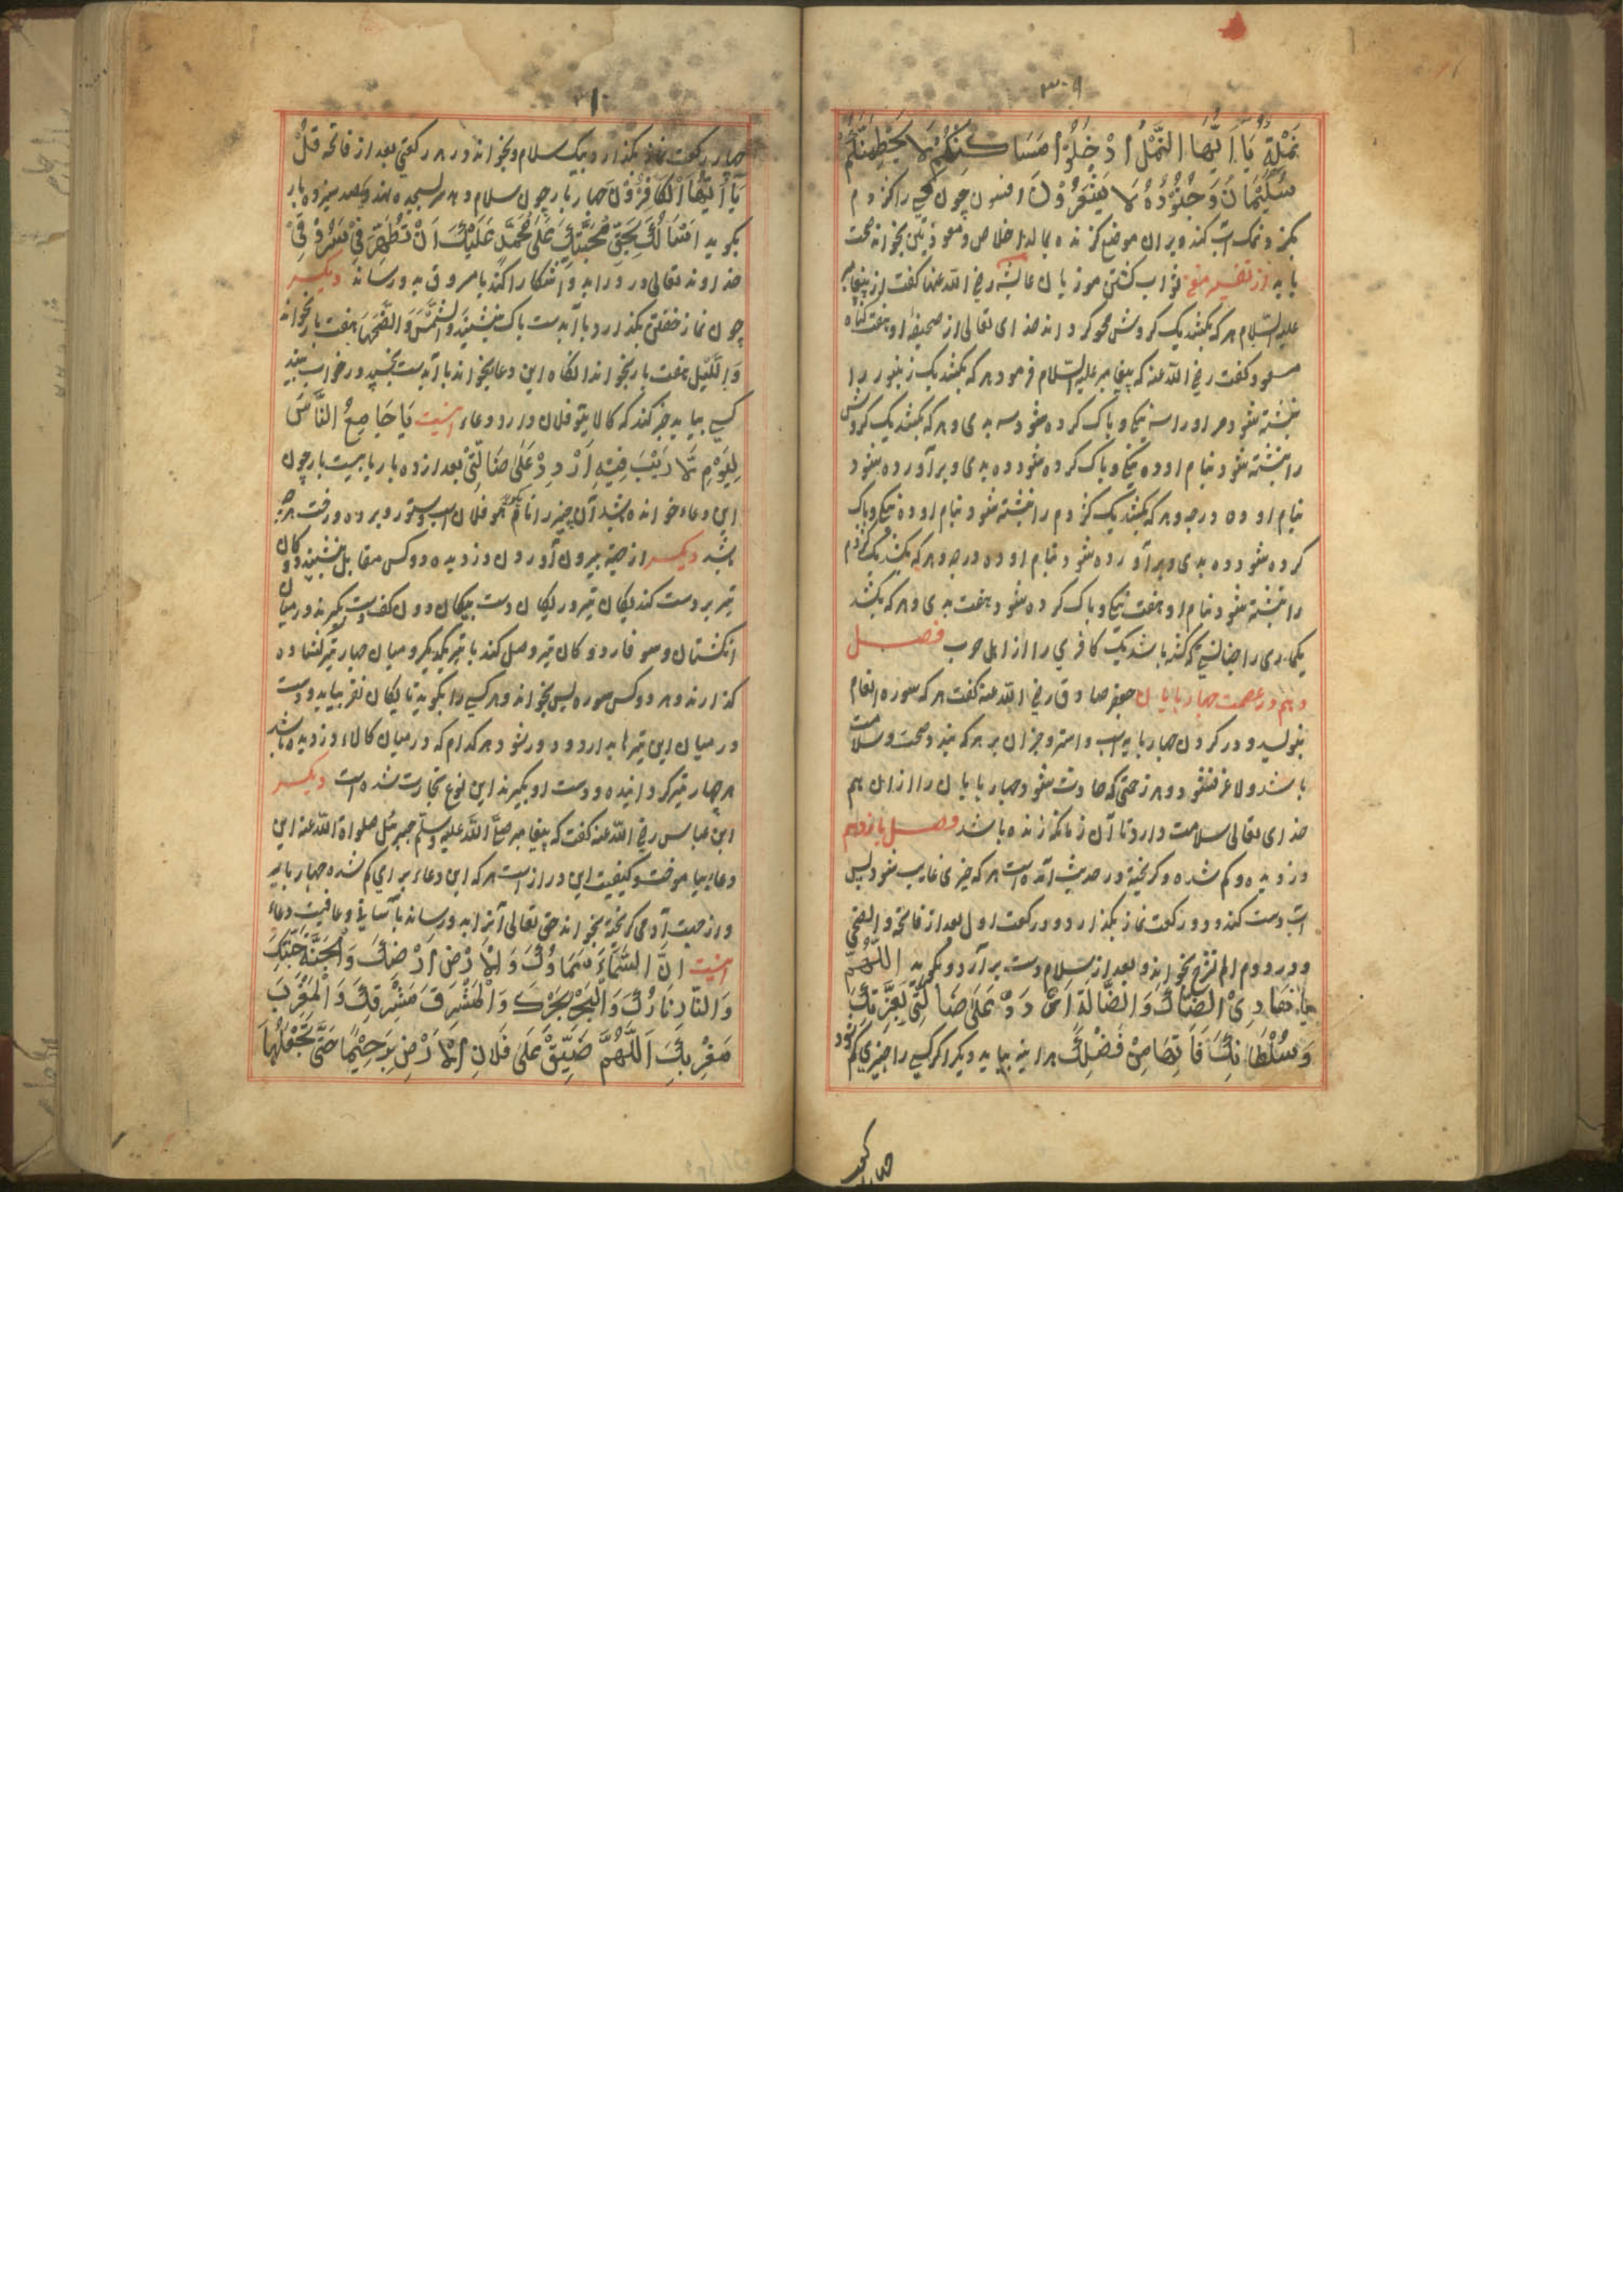 ۳۰۹
نَمْلَةٌ يَا اَيُّهَا النَّمْلُ ادْخُلُوْا مَسَاكِنَكُمْ لَا يَحْطِمَنَّكُمْ
سُلَيْمَانُ وَجُنُوْدُهُ وَهُمْ لَا يَشْعُرُوْنَ افسون چون کسی را کژدم
بگزد و نمک آب کند و بران موضع گزنده بمالد اخلاص و معوذتین بخواند صحت
یابد از تفسیر ثواب کشتن موذیان عایشه رضی الله عنها گفت از پیغامبر
علیه السلام هر که بکشد یک کروش محو کرداند خدای تعالی از صحیفه او هفت گناه
مسعود گفت رضی الله عنه که پیغامبر علیه السلام فرمود هر که بکشد یک زنبور را
نبشته شود مر اورا سه نیکی و پاک کرده شود سه بدی و هر که بکشد یک کروش
را نبشته شود بنام او ده نیکی و پاک کرده شود ده بدی و بر آورده شود
بنام او ده درجه و هر که بکشد یک کژدم را نبشته شود بنام او ده نیکی و پاک
کرده شود ده بدی و بر آورده شود بنام او ده درجه و هر که بکشد یک
را نبشته شود بنام او هفت نیکی و پاک کرده شود هفت بدی و هر که بکشد
یکماری را چنانستی که کشته باشد یک کافری را از اهل حرب فصل
دهم در عصمت چهارپایان جعفر صادق رضی الله عنه گفت هر که سوره انعام
بنویسد و در کردن چهارپایه اسب و استر و جز آن بر هر که بندد صحت و سلامت
باشد و لاغر نشود و هر زحمتی که حادث شود چهارپایان را از آن هم
خدای تعالی سلامت دارد تا آن زمانکه زنده باشد فصل یازدهم
دزدیده و کم شده و کریخته در حدیث آمده است هر که چیزی غایب شود پس
آبدست کند و دو رکعت نماز بکذارد و در رکعت اول بعد از فاتحه والضحی
و در دوم الم نشرح بخواند و بعد از سلام دست بر آرد و بگوید اَللّٰهُمَّ
يَا هَادِیْ الضَّالَّ وَ الضَّالَّةِ اُرْدُدْ عَلَی ضَالَّتِیْ بِعِزَّتِكَ
وَ سُلْطَانِكَ فَاِنَّهَا مِنْ فَضْلِكَ هر اینه بیاید دیکر اگر کسی را چیزی کم شود
چهار رکعت
۳۱۰
چهار رکعت نماز بکذارد بیک سلام و بخواند در هر رکعتی بعد از فاتحه قُلْ
يَا اَيُّهَا الْكَافِرُوْنَ چهار بار چون سلام دهد سر بسجده نهد و صد سیزده بار
بگوید اَسْئَالُكَ بِحَقِّ مُحَبَّتِكَ عَلَی مُحَمَّدٍ عَلَيْكَ اَنْ تُظْهِرَ لِیْ
خداوند تعالی دزد را بد و آشکارا کند یا مسروق بدو رساند دیکر
چون نماز خفتن بکذارد با آبدست پاک بنشیند وَالشَّمْسِ وَ الضُّحَهَا هفت بار بخواند
وَ اللَّيْلِ هفت بار بخواند آنگاه این دعا بخواند با آبدست بخسپد در خواب بیند
کسی بیاید خبر کند که کالا تو فلان دارد و دعاء اینست يَا جَامِعُ النَّاسَ
لِيَوْمٍ لَا رَيْبَ فِيْهِ اُرْدُدْ عَلَی ضَالَّتِیْ بعد از ده بار یا بیست بار چون
این دعاء خوانده شد آن چیز را نام کوید همو فلان اسپ و ستور و برده و رفت هر چه
باشد دیکر از جهت بیرون آوردن دزدیده دو کس مقابل بنشینند و دو کان
تیر بر دست کند پیکان تیر در پیکان دست پیکان دون کف دست بگیرند و در میان
انکشتان و سوفار دو کان تیر وصل کند با تیر یکدیکر و میان چهار تیر کشاده
کذارند و هر دو کس سوره یس بخواند و هر کسی را بگوید تا پیکان نفر بیاید و دست
در میان این تیرها بدارد و دور شود هر کدام که در میان کالاء دزدیده باشد
هر چهار تیر کردانیده و دست او بگیرند این نوع تجارت شده است دیکر
ابن عباس رضی الله عنه گفت که پیغامبر صلی الله علیه وسلم جبرئیل صلواة الله عنه این
دعاء بیاموخت و کیفیت این دراز است هر که این دعاء برای کم شده چهارپایه
و از جهت آدمی کریخته بخواند حق تعالی آنرا بدو رساند بآسانی و عافیت دعاء
اینست اِنَّ السَّمَاءَ سَمَاؤُكَ وَ الْاَرْضَ اَرْضُكَ وَ الْجَنَّةَ جَنَّتُكَ
وَ النَّارَ نَارُكَ وَ الْبَحْرَ بَحْرُكَ وَ الْمَشْرِقَ مَشْرِقُكَ وَ الْمَغْرِبَ
مَغْرِبُكَ اَللّٰهُمَّ ضَيِّقْ عَلَی فُلَانٍ الْاَرْضَ بِرَحْبِهَا حَتَّی تَجْعَلَهَا